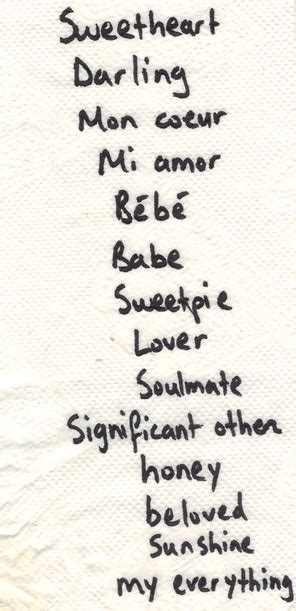 Sweetheart
Darling
Mon coeur
Mi amor
Bébé
Babe
Sweetpie
Lover
Soulmate
Significant other
honey
beloved
Sunshine
my everything